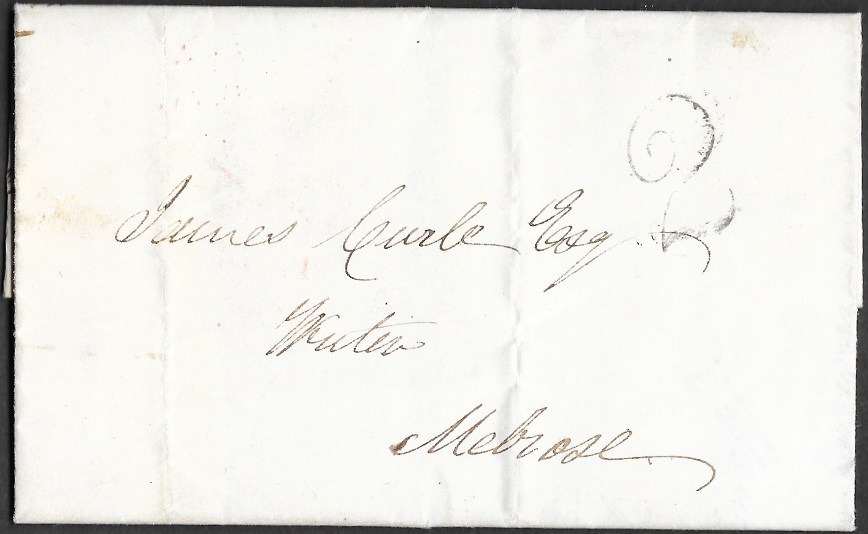 2
James Curle Esq
Writer
Melrose